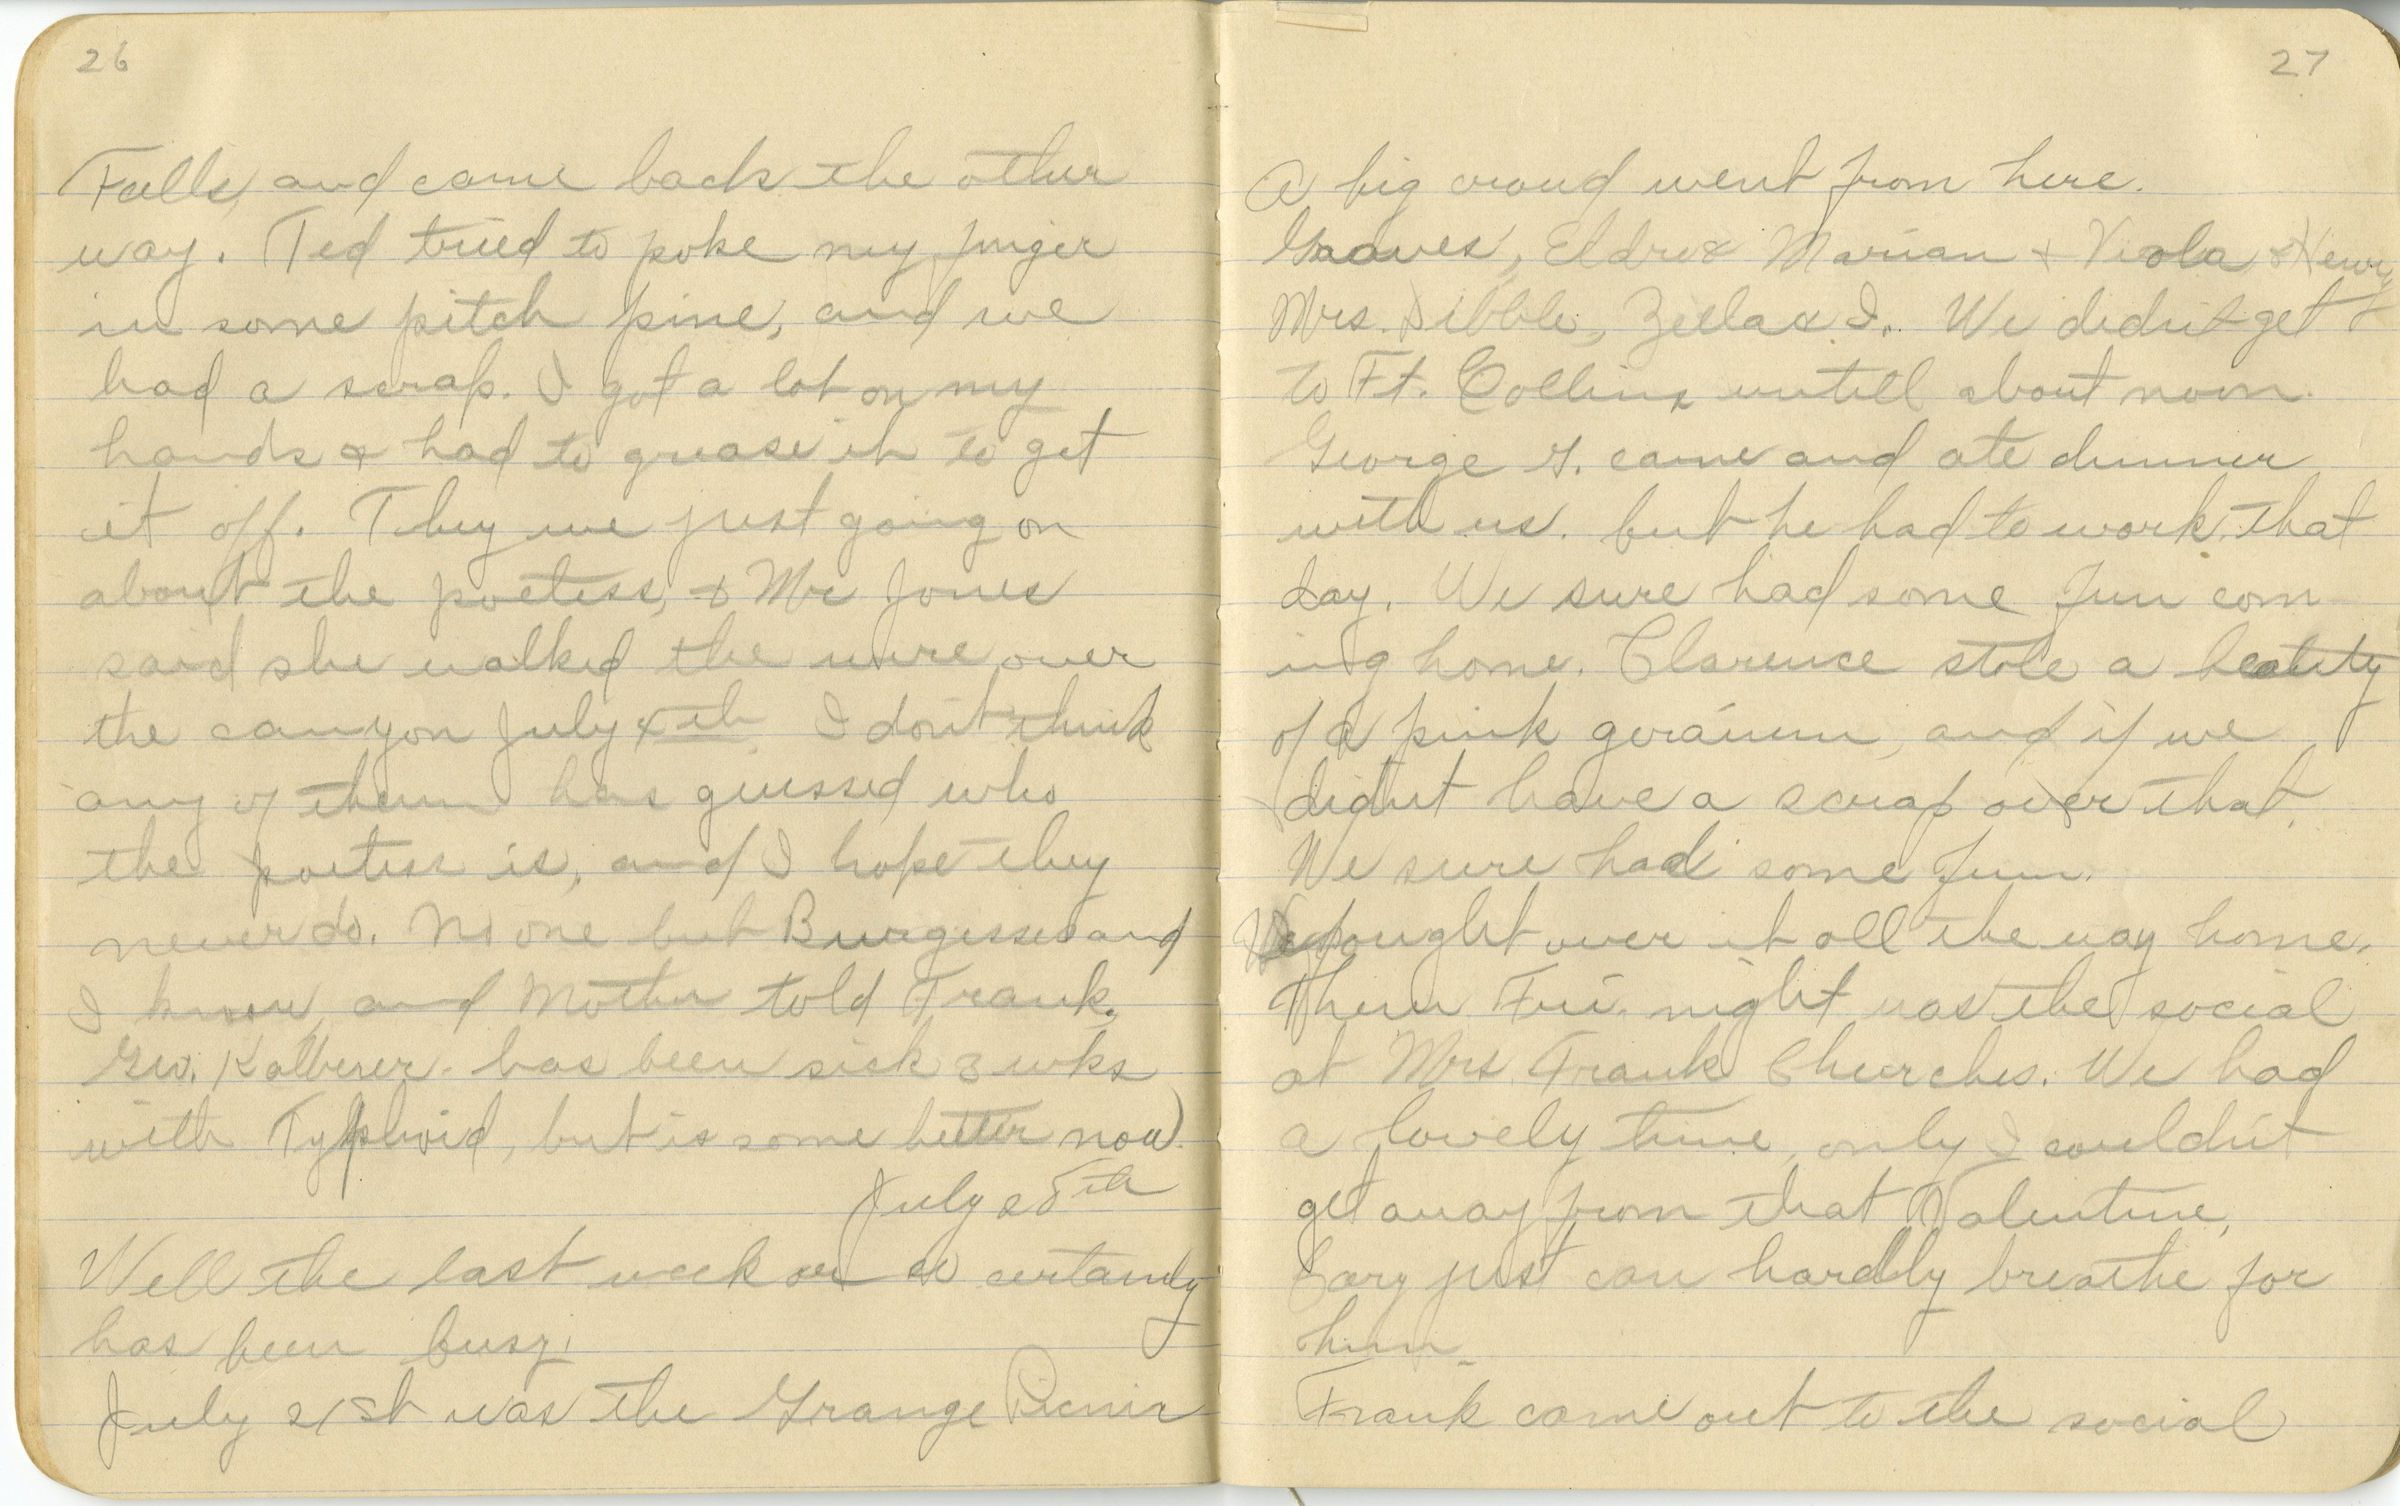 26
Falls, and came back the other
way. Ted tried to poke my finger
in some pitch pine, and we
had a scrap. I got a lot on my
hands & had to grease it to get
it off. They were just going on
about the poetess, & Mr Jones
said she walked the wire over
the canyon July 4th. I don't think
any of them has guessed who
the poetess is, and I hope they
never do. No one but Burgesses and
I know, and Mother told Frank.
Geo. Kalberer has been sick 3 wks
with Typhoid, but is some better now.
July 28th
Well the last week or so certainly
has been busy.
July 21st was the Grange Picnic
27
A big croud went from here.
Graves, Eldre & Marian & Viola &
Mrs. Dibble, Zella & I. We didn't get
to Ft. Collins untill about noon.
George G. came and ate dinner
with us. but he had to work that
day. We sure had some fun com-
ing home. Clarence stole a beauty
of a pink geranium, and if we
didnt have a scrap over that.
We sure had some fun.
We fought over it all the way home.
Then Fri. night was the social
at Mrs. Frank Churches. We had
a lovely time, only I couldn't
get away from that Valentine,
Cary just can hardly breathe for
him.
Frank came out to the social